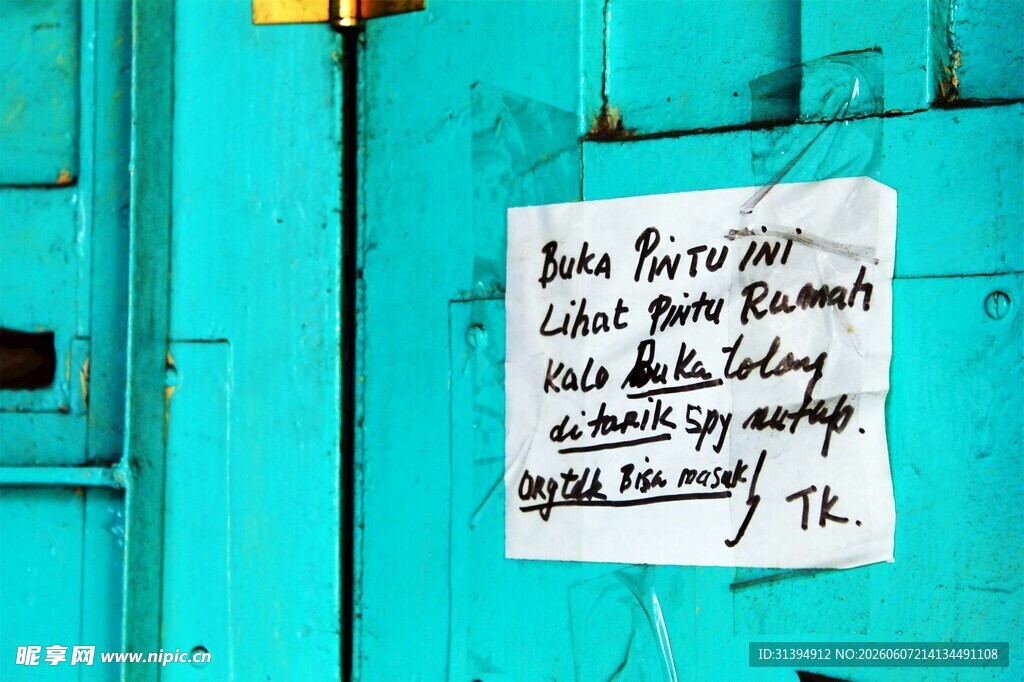 BUKA PINTU INI
Lihat Pintu Rumah
Kalo Buka tolong
ditarik spy nutup.
Orgtdk Bisa masuk
TK.
昵享网 www.nipic.cn
ID:31394912 NO:20260607214134491108